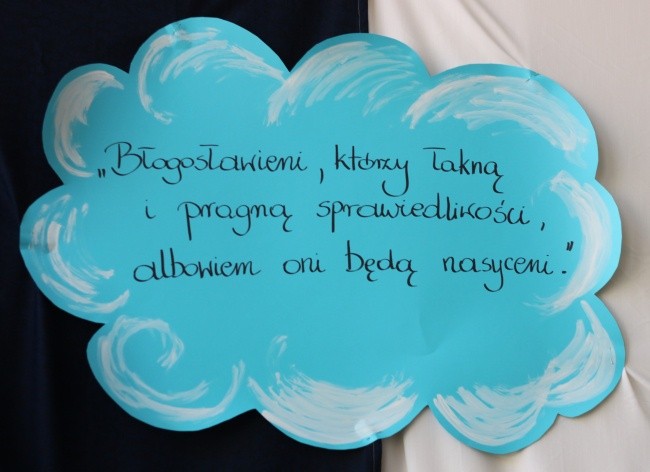 „Błogosławieni, którzy łakną
i pragną sprawiedliwości,
albowiem oni będą nasyceni."